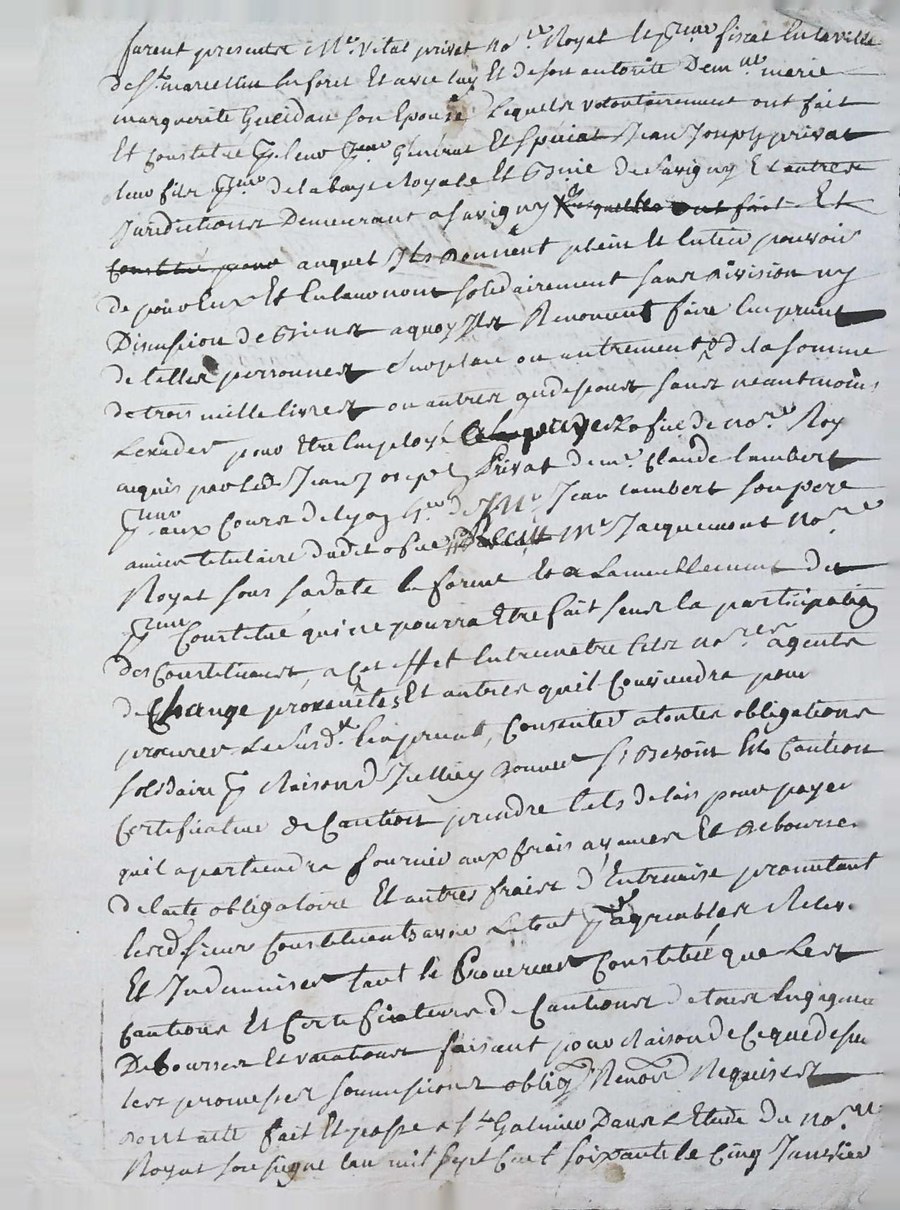 furent presents Me Vital privat nore Royal et pcur fiscal en la ville
de St marcellin en foret Et avec luy Et de son autorité Demlle marie
marguerite Gueidan son Epouse Lequels volontairement ont fait
Et Constitué p. leur pcur Général Et Spécial Jean Joseph privat
leur fils pcur de labaye Royale Et de Savigny Et autres
Juridictions Demeurant a Savigny lesquelles ont fait Et
Constitué pour auquel Ils donnent plein Et Entier pouvoir
de pour Eux Et En leur nom solidairement sans division ny
Discusion de Biens a quoy Ils Renoncent faire Emprunt
de telles personnes Sur place ou autrement & de la somme
de trois mille livres ou autres au desous, sans neantmoins
Lexceder pour Etre Employé a lofice de nore Roy
acquis par led Jean Joseph Privat de mr Claude lambert
pcur aux Cours de lyon Jean lambert son pere
ancien titulaire dudit ofice Me Jacquemont nore
Royal sous sa date En forme Et a Lameublement du
pcur Constitué qui ne pourra Etre fait sans la participation
des Constituants, a Cet Effet Entremetre tels nores agents
de Change proxenetes Et autres quil Conviendra pour
procurer Le susdt. Emprunt, Consentir a toutes obligations
solidaire donner si Besoin Est Caution
Certificateur de Caution prendre tels delais pour payer
quil apartiendra fournir aux frais avances Et debourses
de lacte obligatoire Et autres fraix d'Entremise promettant
lesd sieurs Constituants avoir Le tout p. agreables Relev.
Et Indemniser tant le Procureur Constitué que Les
Cautions Et Certificateurs de Cautions de tous Engagem
Debourses Et vacations faisant pour Raison de Ce que desu
les promesses soumissions oblig Renon Requises
dont acte fait Et passé a St Galmier Dans LEtude du nore
Royal sousigné Lan mil sept Cent soixante le Cinq Janvier